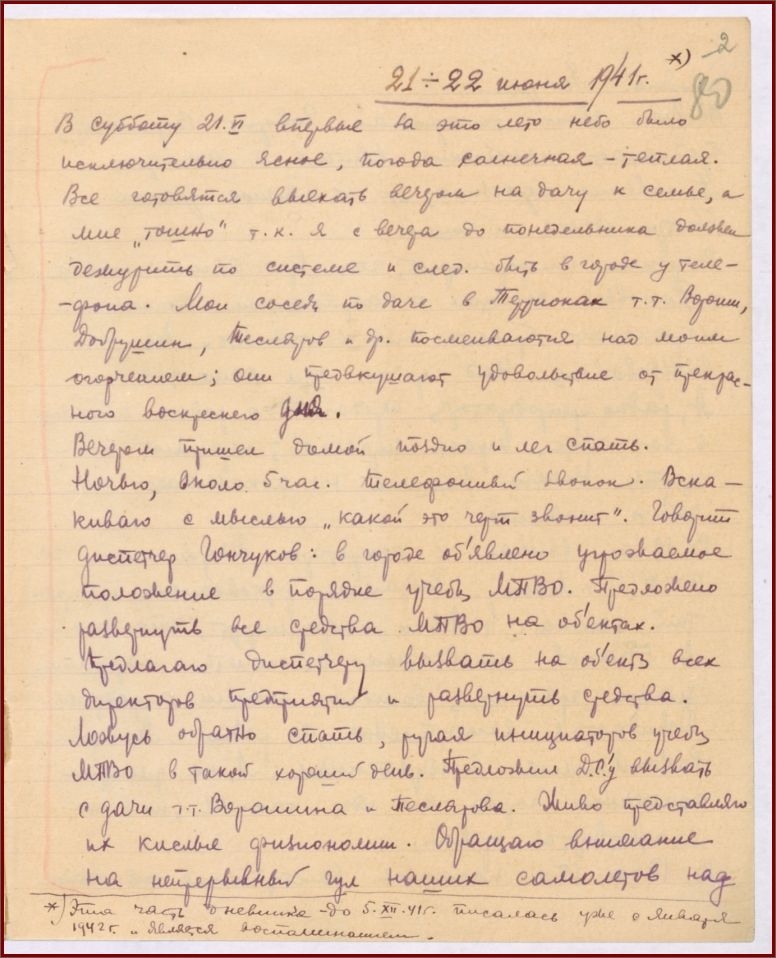 2
80
21÷22 июня 1941г. *)
В субботу 21.VI впервые за это лето небо было
исключительно ясное, погода солнечная – теплая.
Все готовятся выехать вечером на дачу к семье, а
мне „тошно" т.к. я с вечера до понедельника должен
дежурить по системе и след. быть в городе у теле-
-фона. Мои соседи по даче в Териоках т.т. Ворошин,
Добрушин, Тесляров и др. посмеиваются над моим
огорчением; они предвкушают удовольствие от прекрас-
ного воскресного дня.
Вечером пришел домой поздно и лег спать.
Ночью, около 5 час. телефонный звонок. Вска-
киваю с мыслью „какой это черт звонит". Говорит
диспетчер Гончуков: в городе об'явлено угрожаемое
положение в порядке учебы МПВО. Предложено
развернуть все средства МПВО на об'ектах.
Предлагаю диспетчеру вызвать на об'екты всех
директоров предприятий и развернуть средства.
Ложусь обратно спать, ругая инициаторов учебы
МПВО в такой хороший день. Предложил вызвать
с дачи т.т. Ворошина и Теслярова. Живо представляю
их кислые физиономии. Обращаю внимание
на непрерывный гул наших самолетов над
*) Эта часть дневника до 5.XII.41г. писалась уже с января
1942 г. и является воспоминанием.